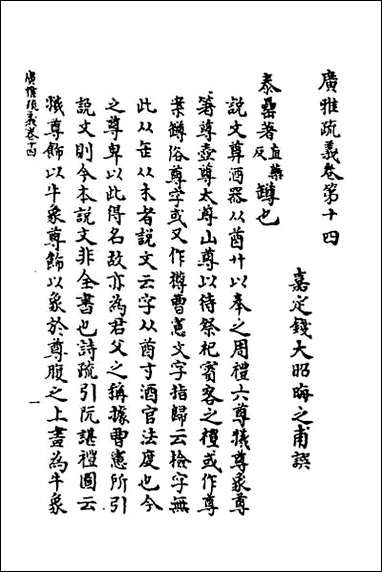 廣雅疏義卷第十四
嘉定錢大昭晦之甫譔
泰罍著直藥反罇也
說文尊酒器从酋廾以奉之周禮六尊犧尊象尊
箸尊壺尊太尊山尊以待祭祀賓客之禮或作尊
案罇俗尊字或又作樽曹憲文字指歸云檢字無
此从缶从木者說文云字从酋寸酒官法度也今
之尊卑以此得名故亦為君父之稱據曹憲所引
說文則今本說文非全書也詩疏引阮諶禮圖云
犧尊飾以牛象尊飾以象於尊腹之上畫為牛象
廣雅疏義卷十四
一